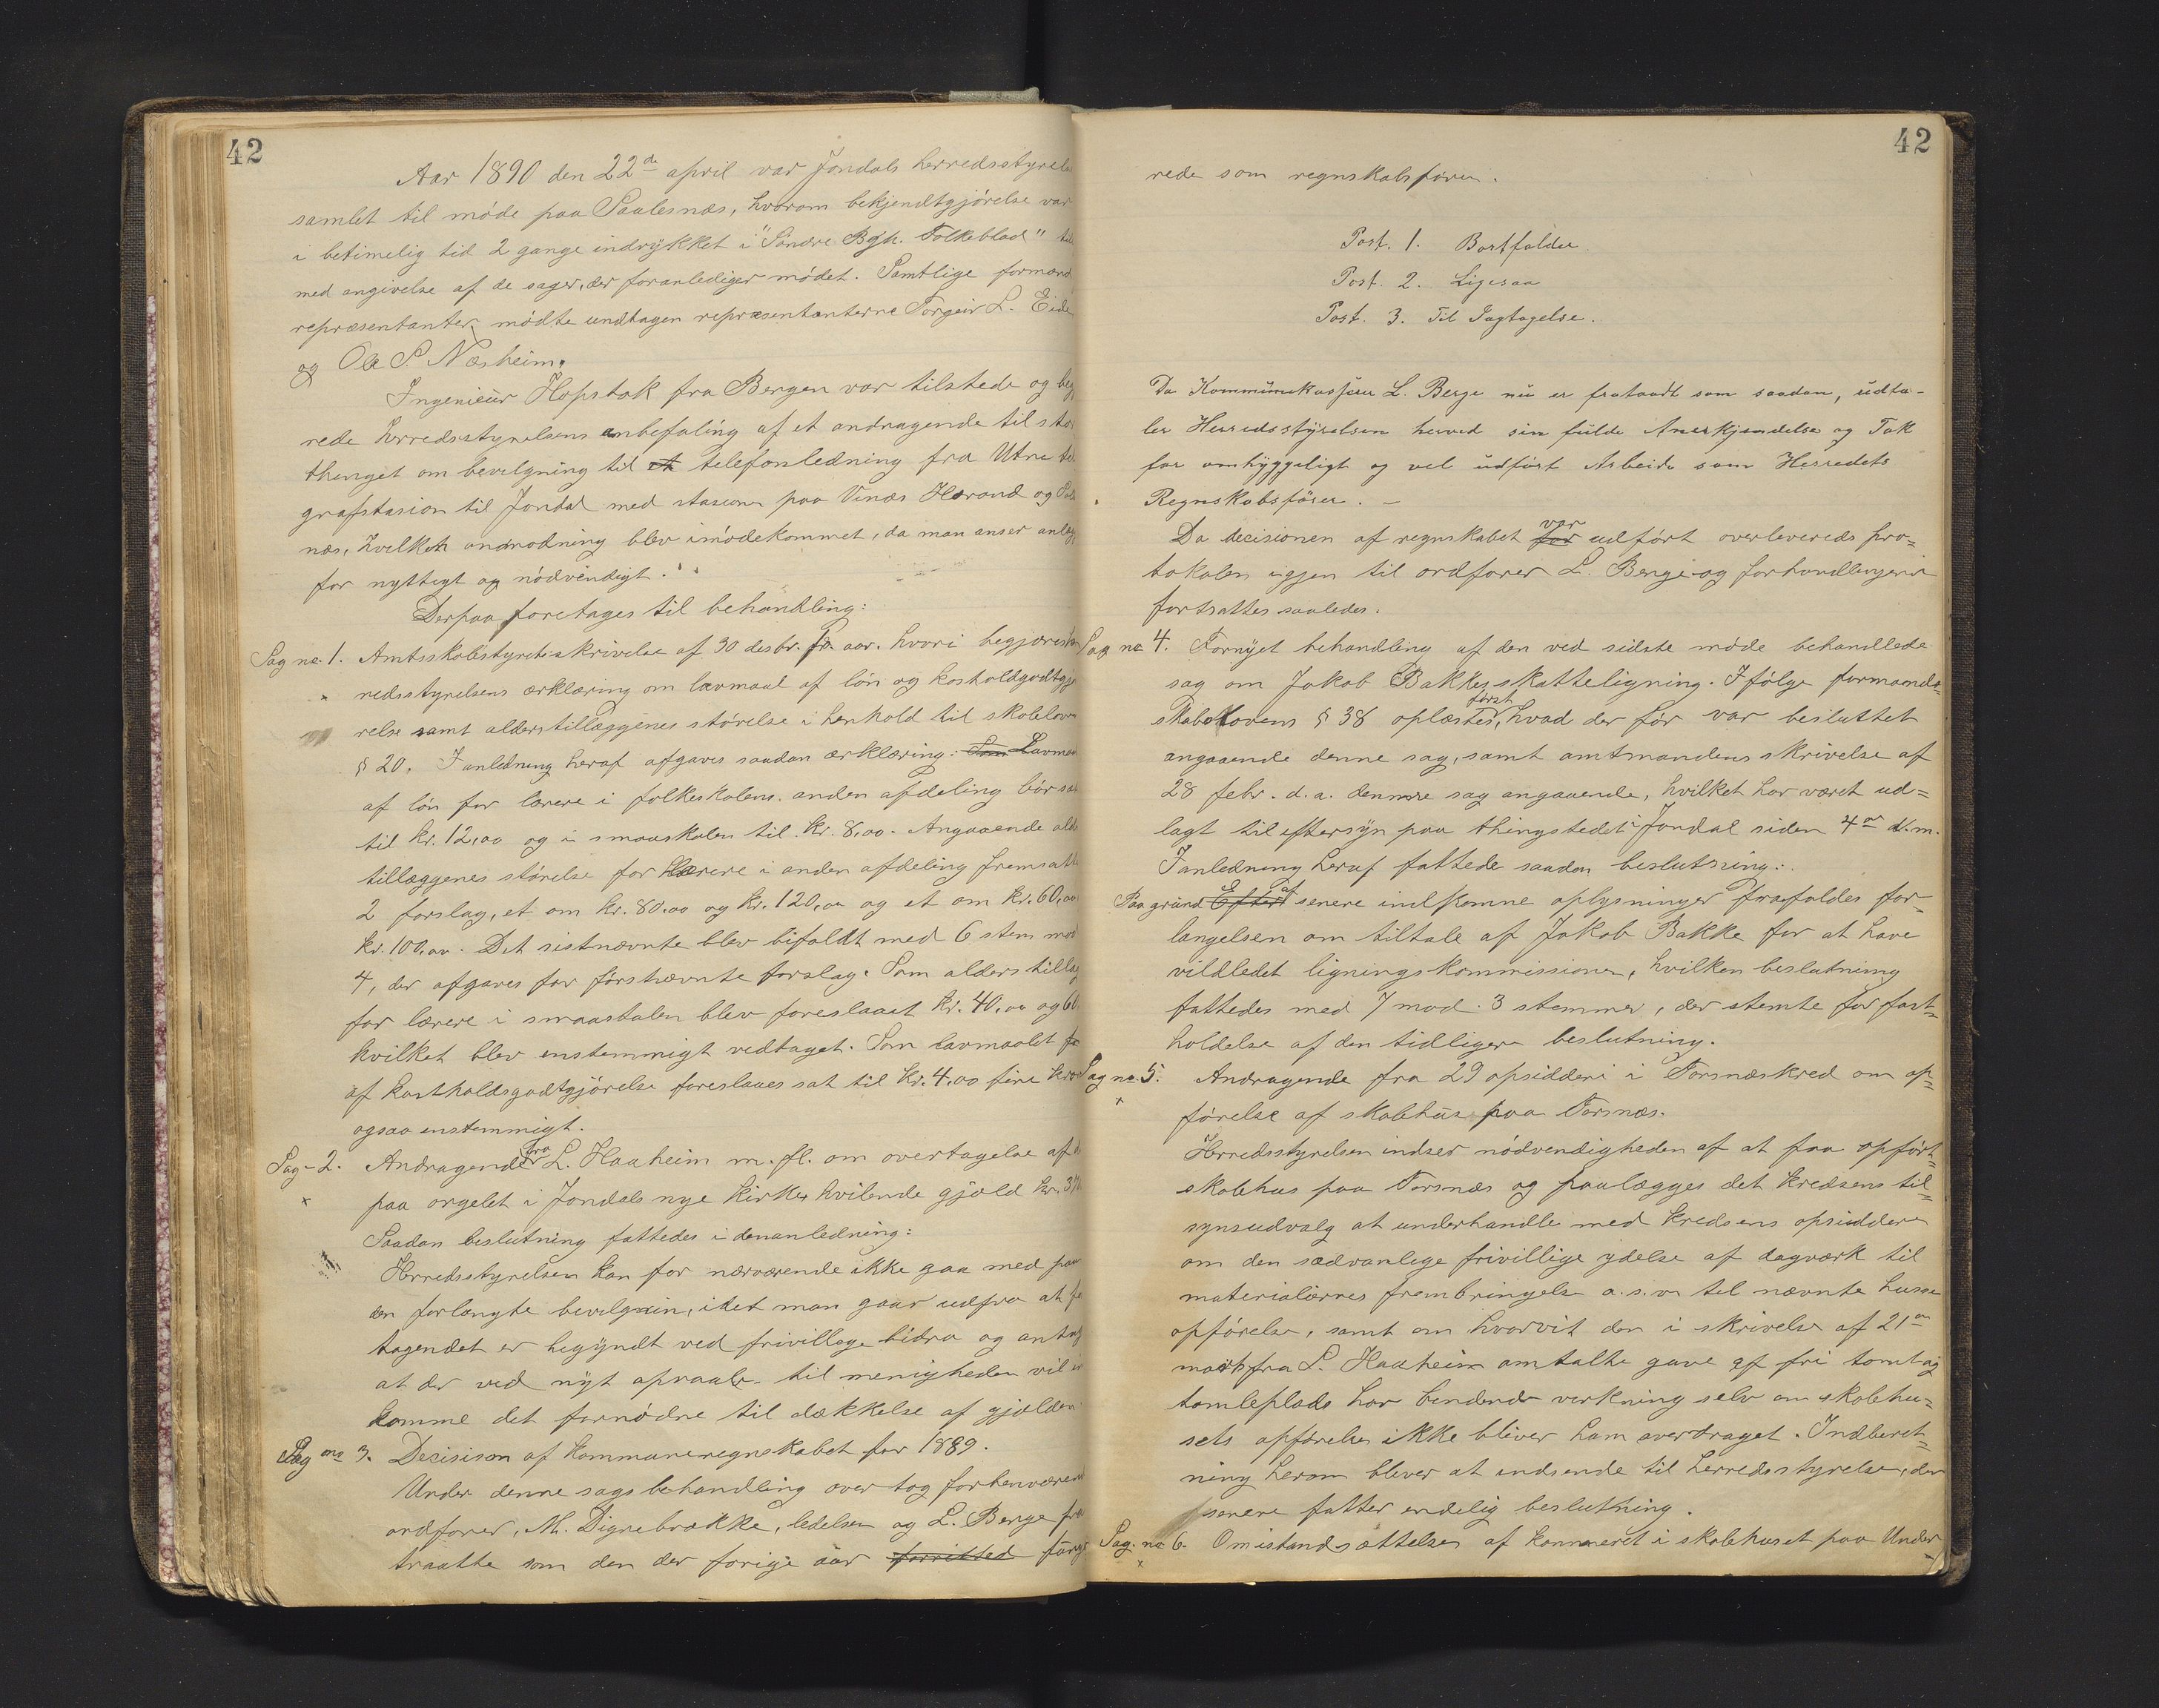 42
Aar 1890 den 22de april var Jondals herredsstyrelse
samlet til møde paa Saalesnæs, hvorom bekjendtgjørelse var
i betimelig tid 2 gange indrykket i "Søndre Bgh. Folkeblad"
med angivelse af de sager, der foranlediger mødet. Samtlige formænd
repræsentanter mødte undtagen repræsentanterne Torgeir L. Eide
og Ole S. Næsheim.
Ingeniør Hopstok fra Bergen var tilstede og beg
rede herredsstyrelsens anbefaling af et andragende til stor
thinget om bevilgning til et telefonledning fra Utne tele
grafstasion til Jondal med stasioner paa Vinæs Herand og Sols
næs, hvilken anmodning blev imødekommet, da man anser anlæg
for nyttigt og nødvendigt.
Derpaa foretages til behandling:
Sag no. 1. Amtsskolestyrets skrivelse af 30 desbr. f. aar. hvori begjæres her
redsstyrelsens erklæring om lavmaal af løn og kostholdgodtgjø
relse samt alderstillæggenes størelse i henhold til skolelovens
§ 20. I anledning heraf afgaves saadan erklæring: Som Lavmaal
af løn for lærere i folkeskolens anden afdeling bør sæ
til kr. 12,00 og i smaaskolen til kr. 8,00. Angaaende alders
tillæggenes størelse for lærere i anden afdeling fremsatte
2 forslag, et om kr. 80.00 og kr. 120,00 og et om kr. 60,00
kr. 100,00. Det sistnævnte blev bifaldt med 6 stem mod
4, der afgaves for førstnævnte forslag. Som alderstillæg
for lærere i smaaskolen blev foreslaaet kr. 40,00 og 60
hvilket blev enstemmigt vedtaget. Som lavmaalet for
af kostholdsgodtgjørelse foreslaaes sat til kr. 4.00 fire kroner
ogsaa enstemmigt.
Sag - 2. Andragende fra L. Haaheim m. fl. om overtagelse af d
paa orgelet i Jondals nye kirke hvilende gjæld kr. 37
Saadan beslutning fattedes i den anledning:
Herredsstyrelsen kan for nærværende ikke gaa med paa
den forlangte bevilgnin, idet man gaar udfra at fo
tagendet er begyndt ved frivillige bidra og antag
at der ved nyt opraab til menigheden vil in
komme det fornødne til dækkelse af gjælden
Sag no 3. Decision af kommuneregnskabet for 1889.
Under denne sags behandling over tog forhenværende
ordfører, M. Digrebrække, ledelsen og L. Berge fra
traatte som den der forige aar forritted fung
42
rede som regnskabsfører.
Post. 1. Bortfalder
Post. 2. Ligesaa
Post. 3. Til Iagtagelse.
Da Kommunekasserer L. Berge nu er fratraadt som saadan, udta-
ler Herredsstyrelsen herved sin fulde Anerkjendelse og Tak
for omhyggeligt og vel udført Arbeide som Herredets
Regnskabsfører. -
Da decisionen af regnskabet for var udført overleveredes pro=
tokolen igjen til ordfører L. Berge og forhandlingerne
fortsattes saaledes.
Sag no 4. Fornyet behandling af den ved sidste møde behandlede
sag om Jakob Bakkes skatteligning. I følge formands=
skabslovens § 38 oplæstes, først hvad der før var besluttet
angaaende denne sag, samt amtmandens skrivelse af
28 febr. d. a. denne sag angaaende, hvilket har været ud=
lagt til eftersyn paa thingstedet i Jondal siden 4de d. m.
I anledning heraf fattede saadan beslutning:
Paa grund Efter af senere indkomne oplysninger frafaldes for=
langelsen om tiltale af Jakob Bakke for at have
vildledet ligningskommissionen, hvilken beslutning
fattedes med 7 mod 3 stemmer, der stemte for fast=
holdelse af den tidligere beslutning.
Sag no 5. Andragende fra 29 opsiddere i Torsnæskred om op=
førelse af skolehus paa Torsnæs.
Herredsstyrelsen indser nødvendigheden af at faa opført=
skolehus paa Torsnæs og paalægges det kredsens til=
synsudvalg at underhandle med kredsens opsiddere
om den sædvanlige frivillige ydelse af dagværk til
materialiernes frembringelse o. s. v. til nævnte huses
opførelse, samt om hvorvit den i skrivelse af 21de
marts fra L. Haaheim omtalte gave af fri tomt og
tomteplads har bindende verkning selv om skolehu=
sets opførelse ikke bliver ham overdraget. Indberet=
ning herom bliver at indsende til herredsstyrelse, der
senere fatter endelig beslutning.
Sag. no 6. Om istandsættelsen af kammeret i skolehuset paa Under